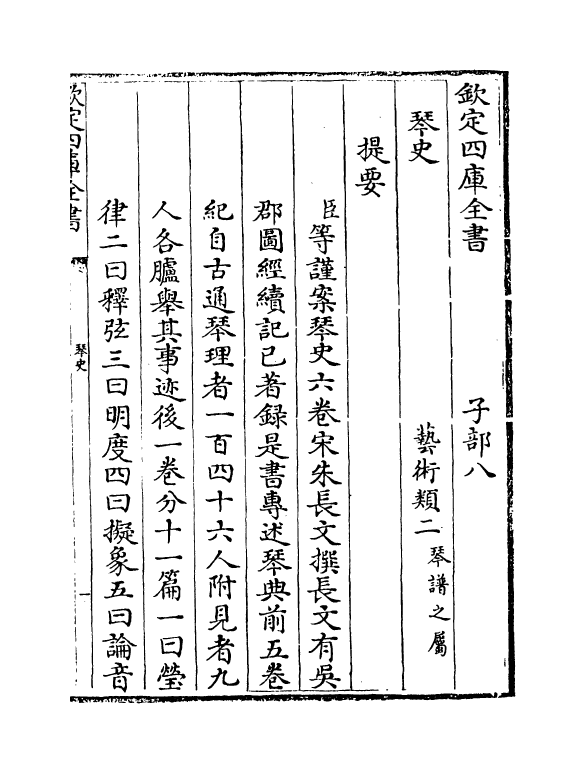 欽定四庫全書　　　子部八
琴史　　　藝術類二琴譜之屬
提要
臣等謹案琴史六卷宋朱長文撰長文有吳
郡圖經續記已著録是書專述琴典前五卷
紀自古通琴理者一百四十六人附見者九
人各臚舉其事迹後一卷分十一篇一曰瑩
律二曰釋弦三曰明度四曰擬象五曰論音
欽定四庫全書
琴史
一